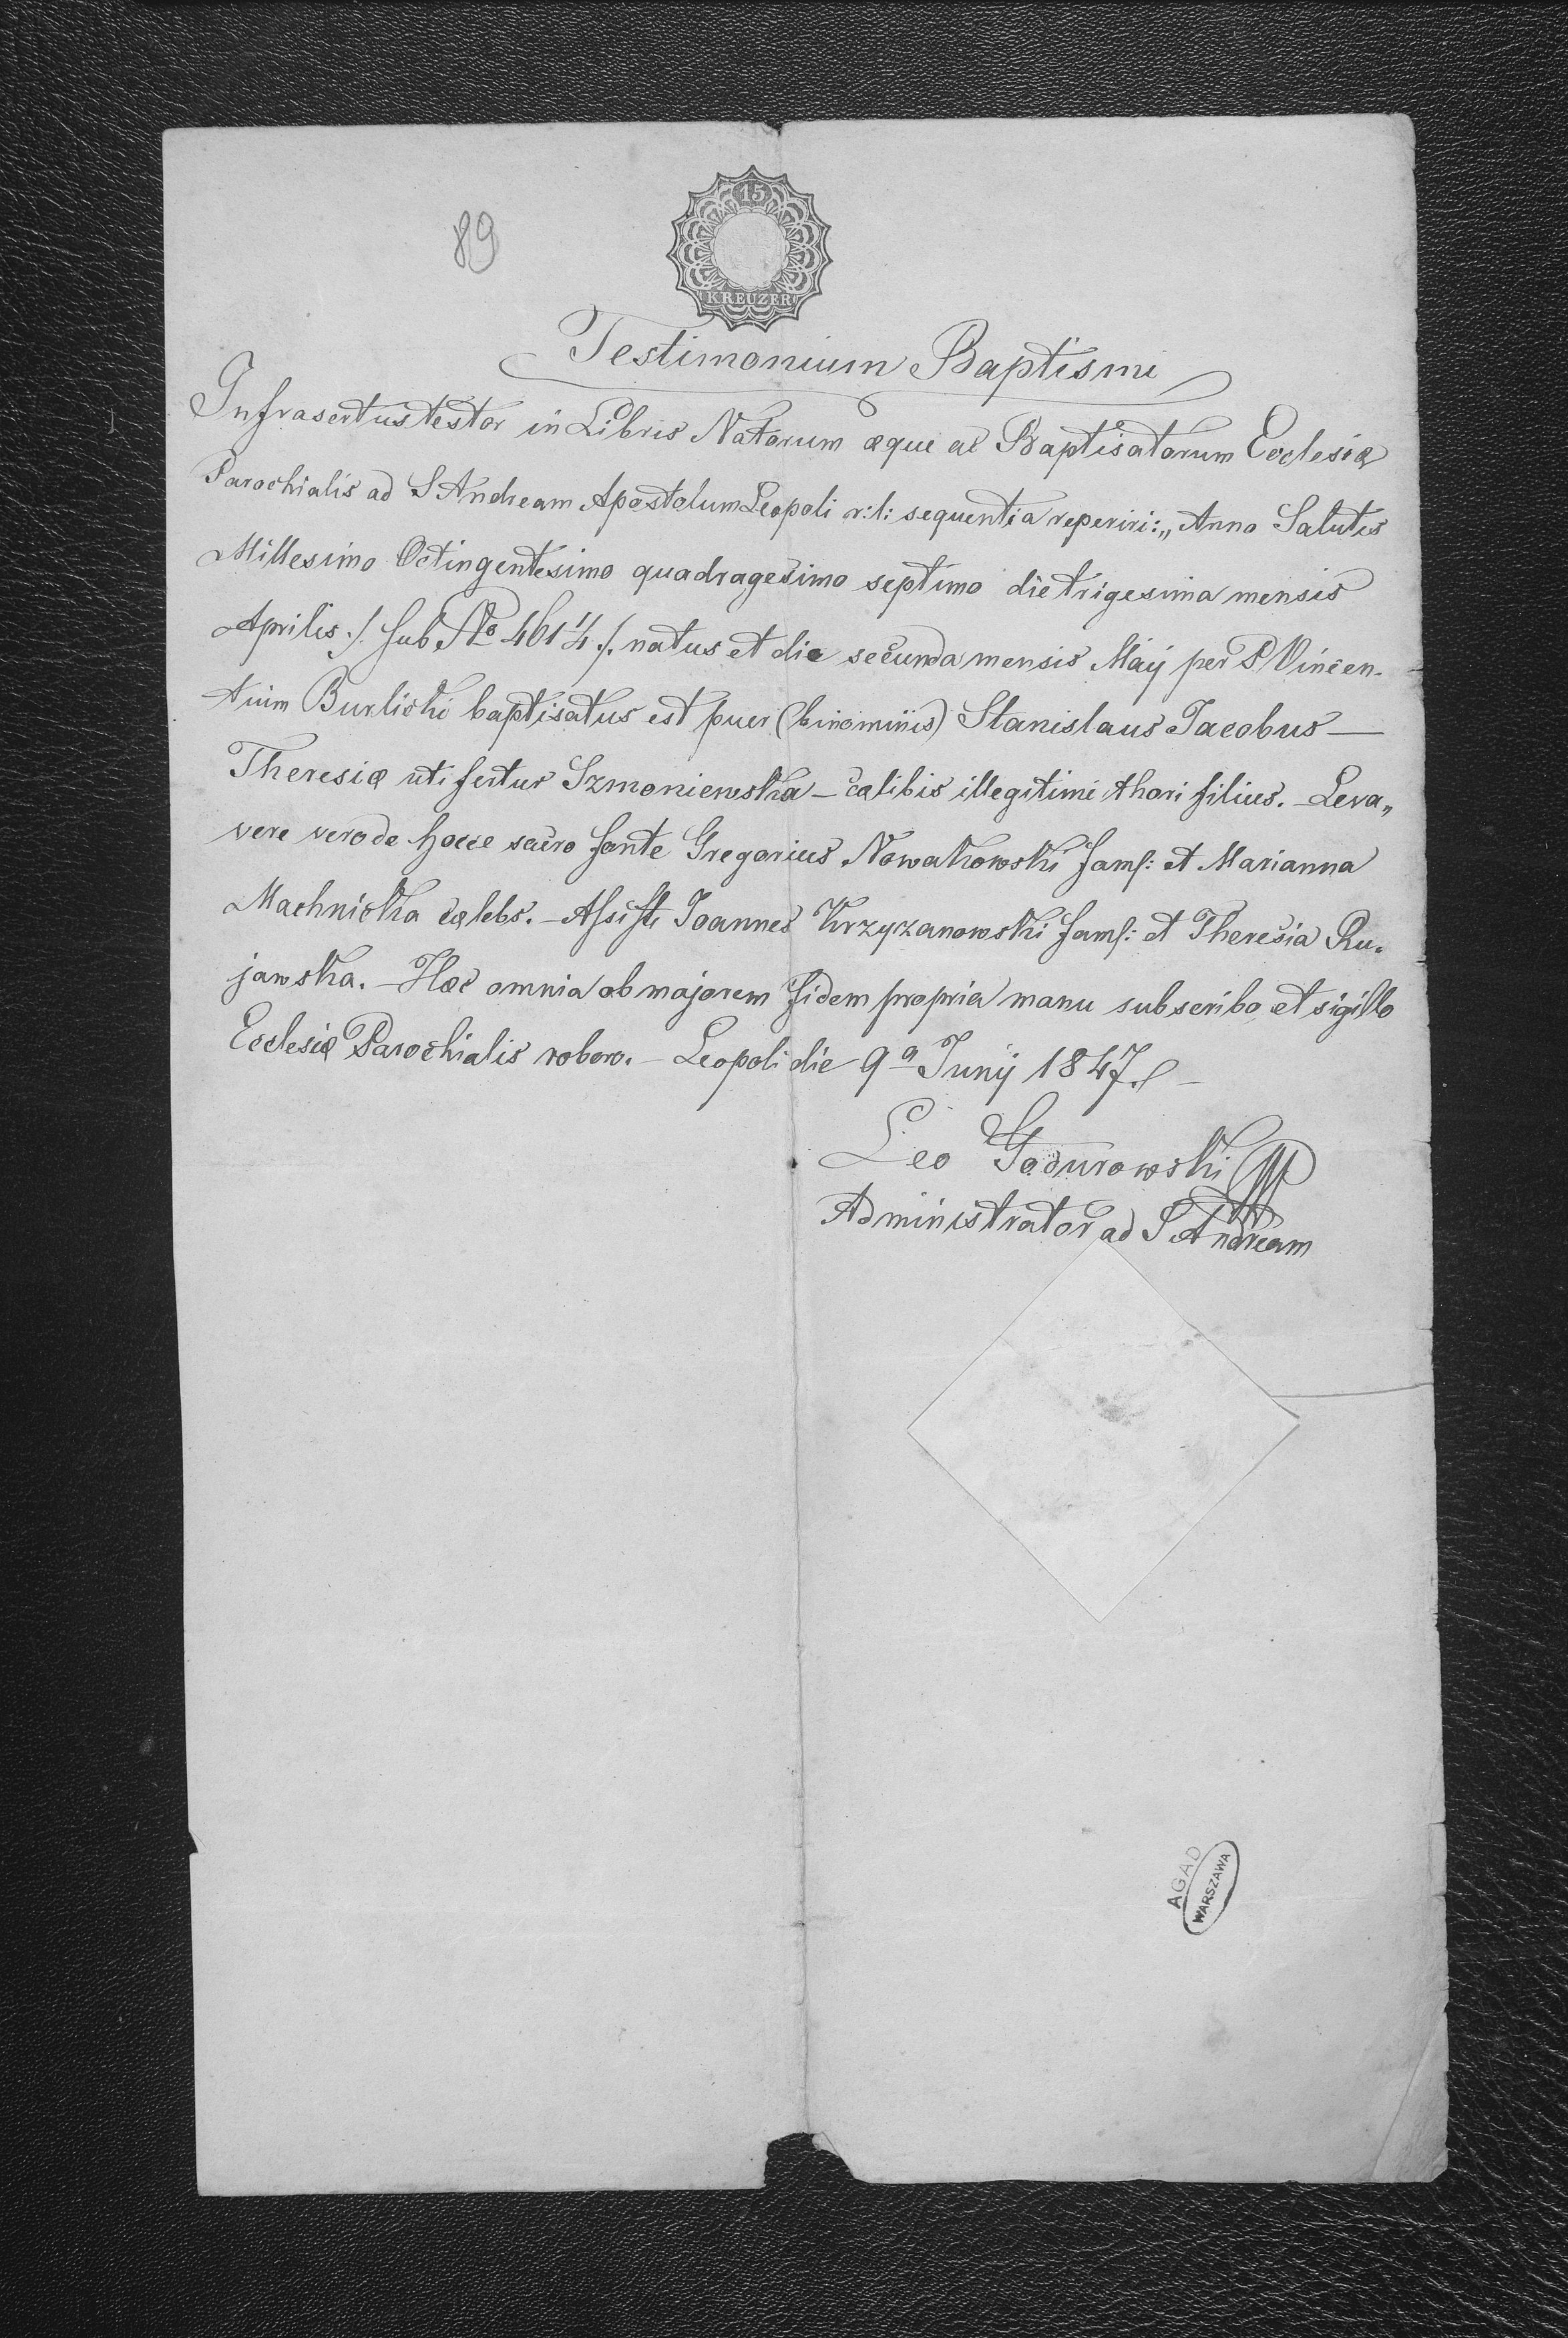 89
15
KREUZER
Testimonium Baptismi
Infrasertus testor in Libris Natorum æque ac Baptisatorum Ecclesiæ
Parochialis ad S Andream Apostolum Leopoli r: l: sequentia reperiri: „Anno Salutis
Millesimo Octingentesimo quadragesimo septimo die trigesima mensis
Aprilis ./. sub No 461 1/4 ./. natus et die secunda mensis Maij per P Vincen-
tium Burlicki baptisatus est puer (binominis) Stanislaus Jacobus —
Theresiæ uti fertur Szmoniewska – cælibis illegitimi thori filius. – Leva„
vere vero de hocce sacro fonte Gregorius Nowakowski faml: et Marianna
Machnicka cælebs. – Assist: Joannes Krzyzanowski faml: et Theresia Ru-
jawska. – Hæc omnia ob majorem fidem propria manu subscribo et sigillo
Ecclesiæ Parochialis roboro. – Leopoli die 9a Junij 1847. –
Leo Godurowski
Administrator ad S Andream
AGAD
WARSZAWA